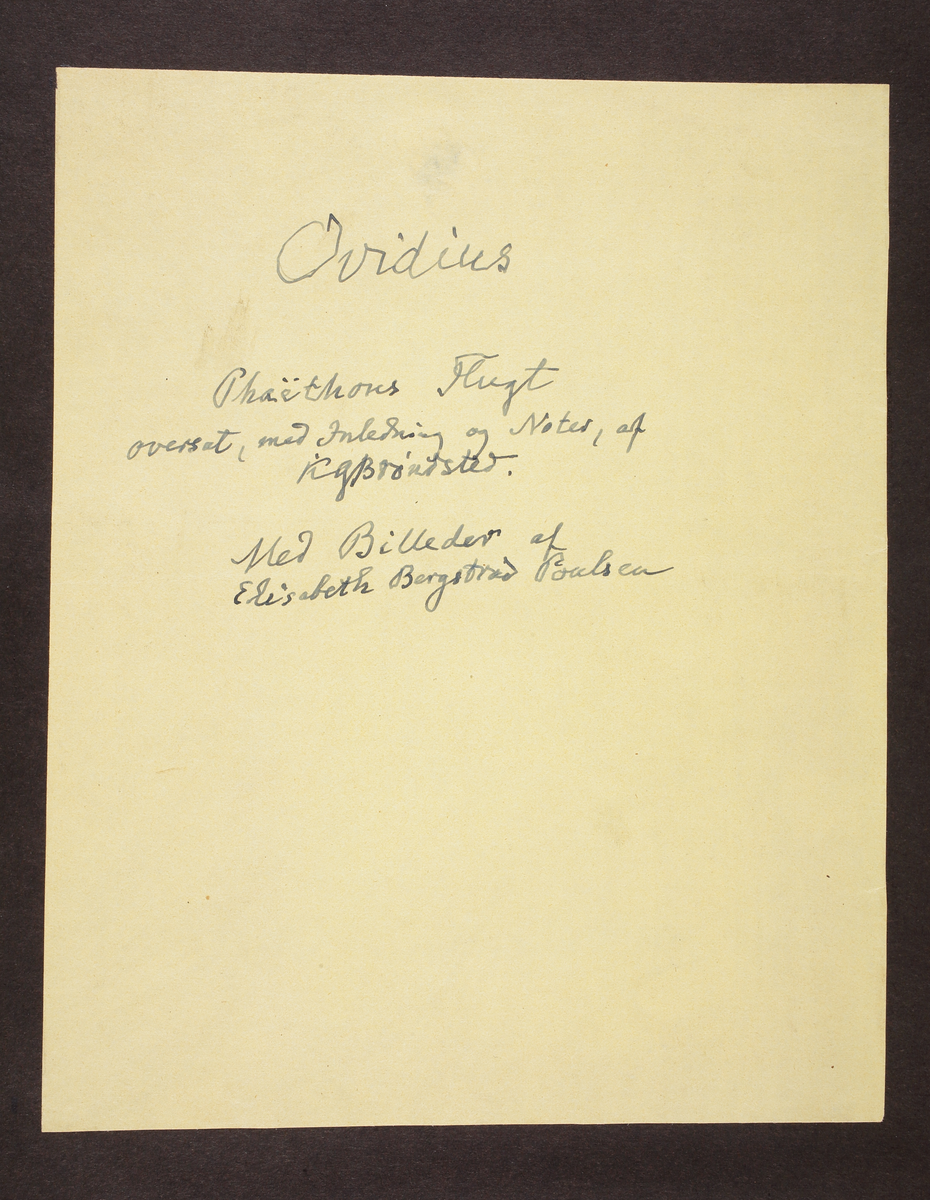 Ovidius
Phaëthons Flugt
oversat, med Inledning og Noter, af
KGBrøndsted.
Med Billeder af
Elisabeth Bergstrad Poulsen